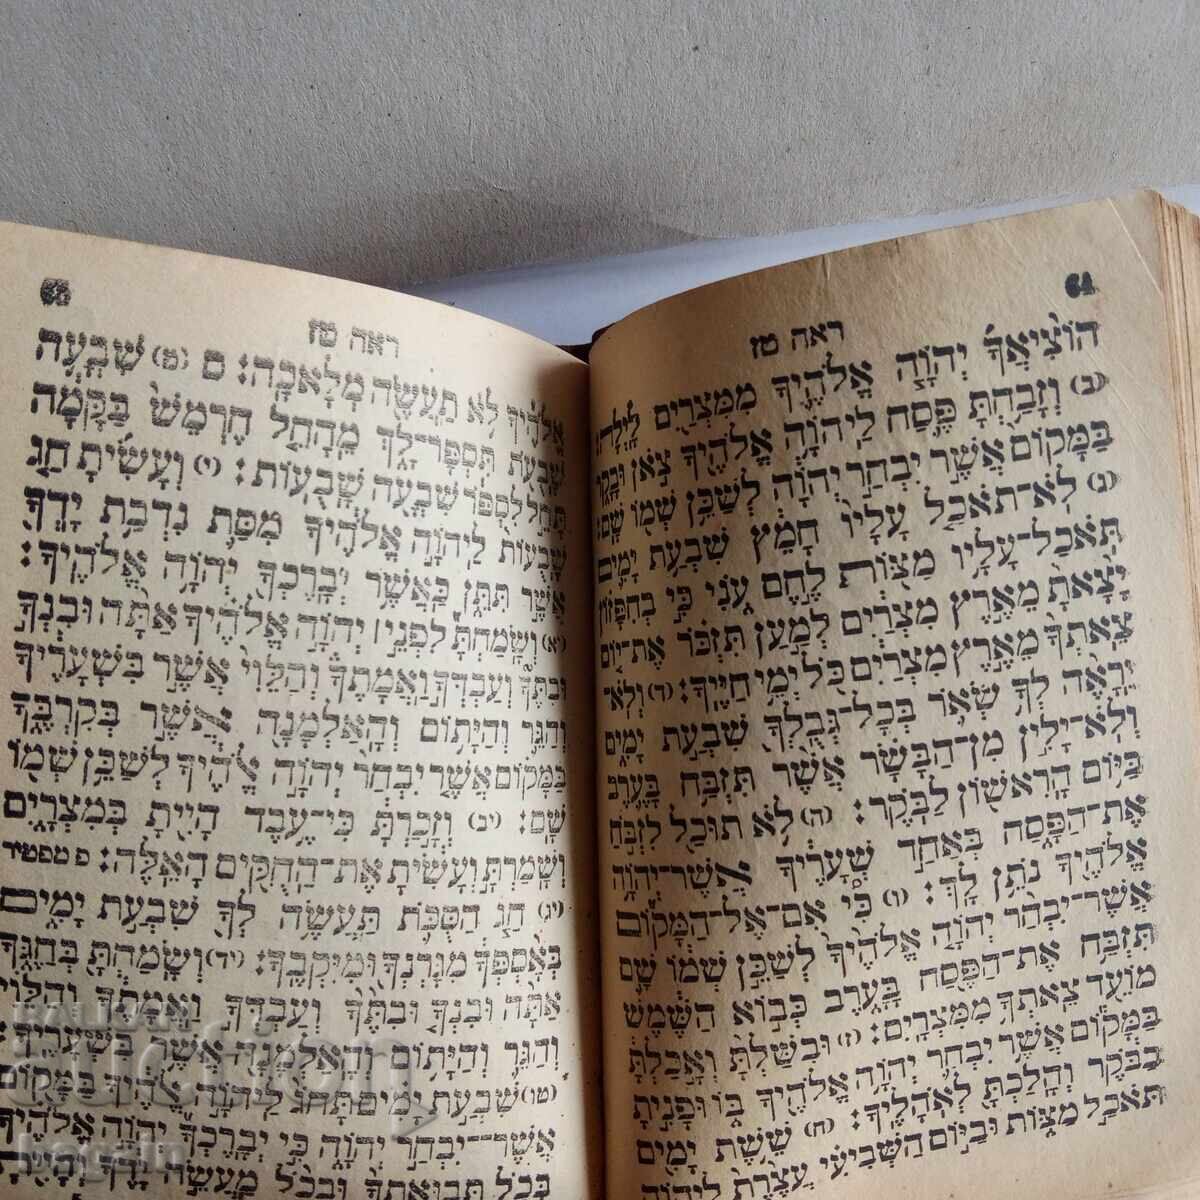 64
ראה טז
הוֹצִיאֲךָ יְהוָה אֱלֹהֶיךָ מִמִּצְרַיִם לָיְלָה:
(ב) וְזָבַחְתָּ פֶּסַח לַיהוָה אֱלֹהֶיךָ צֹאן וּבָקָר
בַּמָּקוֹם אֲשֶׁר יִבְחַר יְהוָה לְשַׁכֵּן שְׁמוֹ שָׁם:
(ג) לֹא־תֹאכַל עָלָיו חָמֵץ שִׁבְעַת יָמִים
תֹּאכַל־עָלָיו מַצּוֹת לֶחֶם עֹנִי כִּי בְחִפָּזוֹן
יָצָאתָ מֵאֶרֶץ מִצְרַיִם לְמַעַן תִּזְכֹּר אֶת־יוֹם
צֵאתְךָ מֵאֶרֶץ מִצְרַיִם כֹּל יְמֵי חַיֶּיךָ: (ד) וְלֹא־
יֵרָאֶה לְךָ שְׂאֹר בְּכָל־גְּבֻלְךָ שִׁבְעַת יָמִים
וְלֹא־יָלִין מִן־הַבָּשָׂר אֲשֶׁר תִּזְבַּח בָּעֶרֶב
בַּיּוֹם הָרִאשׁוֹן לַבֹּקֶר: (ה) לֹא תוּכַל לִזְבֹּחַ
אֶת־הַפָּסַח בְּאַחַד שְׁעָרֶיךָ אֲשֶׁר־יְהוָה
אֱלֹהֶיךָ נֹתֵן לָךְ: (ו) כִּי אִם־אֶל־הַמָּקוֹם
אֲשֶׁר־יִבְחַר יְהוָה אֱלֹהֶיךָ לְשַׁכֵּן שְׁמוֹ שָׁם
תִּזְבַּח אֶת־הַפֶּסַח בָּעָרֶב כְּבוֹא הַשֶּׁמֶשׁ
מוֹעֵד צֵאתְךָ מִמִּצְרָיִם: (ז) וּבִשַּׁלְתָּ וְאָכַלְתָּ
בַּמָּקוֹם אֲשֶׁר יִבְחַר יְהוָה אֱלֹהֶיךָ בּוֹ וּפָנִיתָ
בַבֹּקֶר וְהָלַכְתָּ לְאֹהָלֶיךָ: (ח) שֵׁשֶׁת יָמִים
תֹּאכַל מַצּוֹת וּבַיּוֹם הַשְּׁבִיעִי עֲצֶרֶת לַיהוָה
65
ראה טז
אֱלֹהֶיךָ לֹא תַעֲשֶׂה מְלָאכָה: ס (ט) שִׁבְעָה
שָׁבֻעֹת תִּסְפָּר־לָךְ מֵהָחֵל חֶרְמֵשׁ בַּקָּמָה
תָּחֵל לִסְפֹּר שִׁבְעָה שָׁבֻעוֹת: (י) וְעָשִׂיתָ חַג
שָׁבֻעוֹת לַיהוָה אֱלֹהֶיךָ מִסַּת נִדְבַת יָדְךָ
אֲשֶׁר תִּתֵּן כַּאֲשֶׁר יְבָרֶכְךָ יְהוָה אֱלֹהֶיךָ:
(יא) וְשָׂמַחְתָּ לִפְנֵי יְהוָה אֱלֹהֶיךָ אַתָּה וּבִנְךָ
וּבִתֶּךָ וְעַבְדְּךָ וַאֲמָתֶךָ וְהַלֵּוִי אֲשֶׁר בִּשְׁעָרֶיךָ
וְהַגֵּר וְהַיָּתוֹם וְהָאַלְמָנָה אֲשֶׁר בְּקִרְבֶּךָ
בַּמָּקוֹם אֲשֶׁר יִבְחַר יְהוָה אֱלֹהֶיךָ לְשַׁכֵּן שְׁמוֹ
שָׁם: (יב) וְזָכַרְתָּ כִּי־עֶבֶד הָיִיתָ בְּמִצְרָיִם
וְשָׁמַרְתָּ וְעָשִׂיתָ אֶת־הַחֻקִּים הָאֵלֶּה: פ מפטיר
(יג) חַג הַסֻּכֹּת תַּעֲשֶׂה לְךָ שִׁבְעַת יָמִים
בְּאָסְפְּךָ מִגָּרְנְךָ וּמִיִּקְבֶךָ: (יד) וְשָׂמַחְתָּ בְּחַגֶּךָ
אַתָּה וּבִנְךָ וּבִתֶּךָ וְעַבְדְּךָ וַאֲמָתֶךָ וְהַלֵּוִי
וְהַגֵּר וְהַיָּתוֹם וְהָאַלְמָנָה אֲשֶׁר בִּשְׁעָרֶיךָ:
(טו) שִׁבְעַת יָמִים תָּחֹג לַיהוָה אֱלֹהֶיךָ בַּמָּקוֹם
אֲשֶׁר־יִבְחַר יְהוָה כִּי יְבָרֶכְךָ יְהוָה אֱלֹהֶיךָ
בְּכֹל תְּבוּאָתְךָ וּבְכֹל מַעֲשֵׂה יָדֶיךָ וְהָיִיתָ
BALKAN
auction